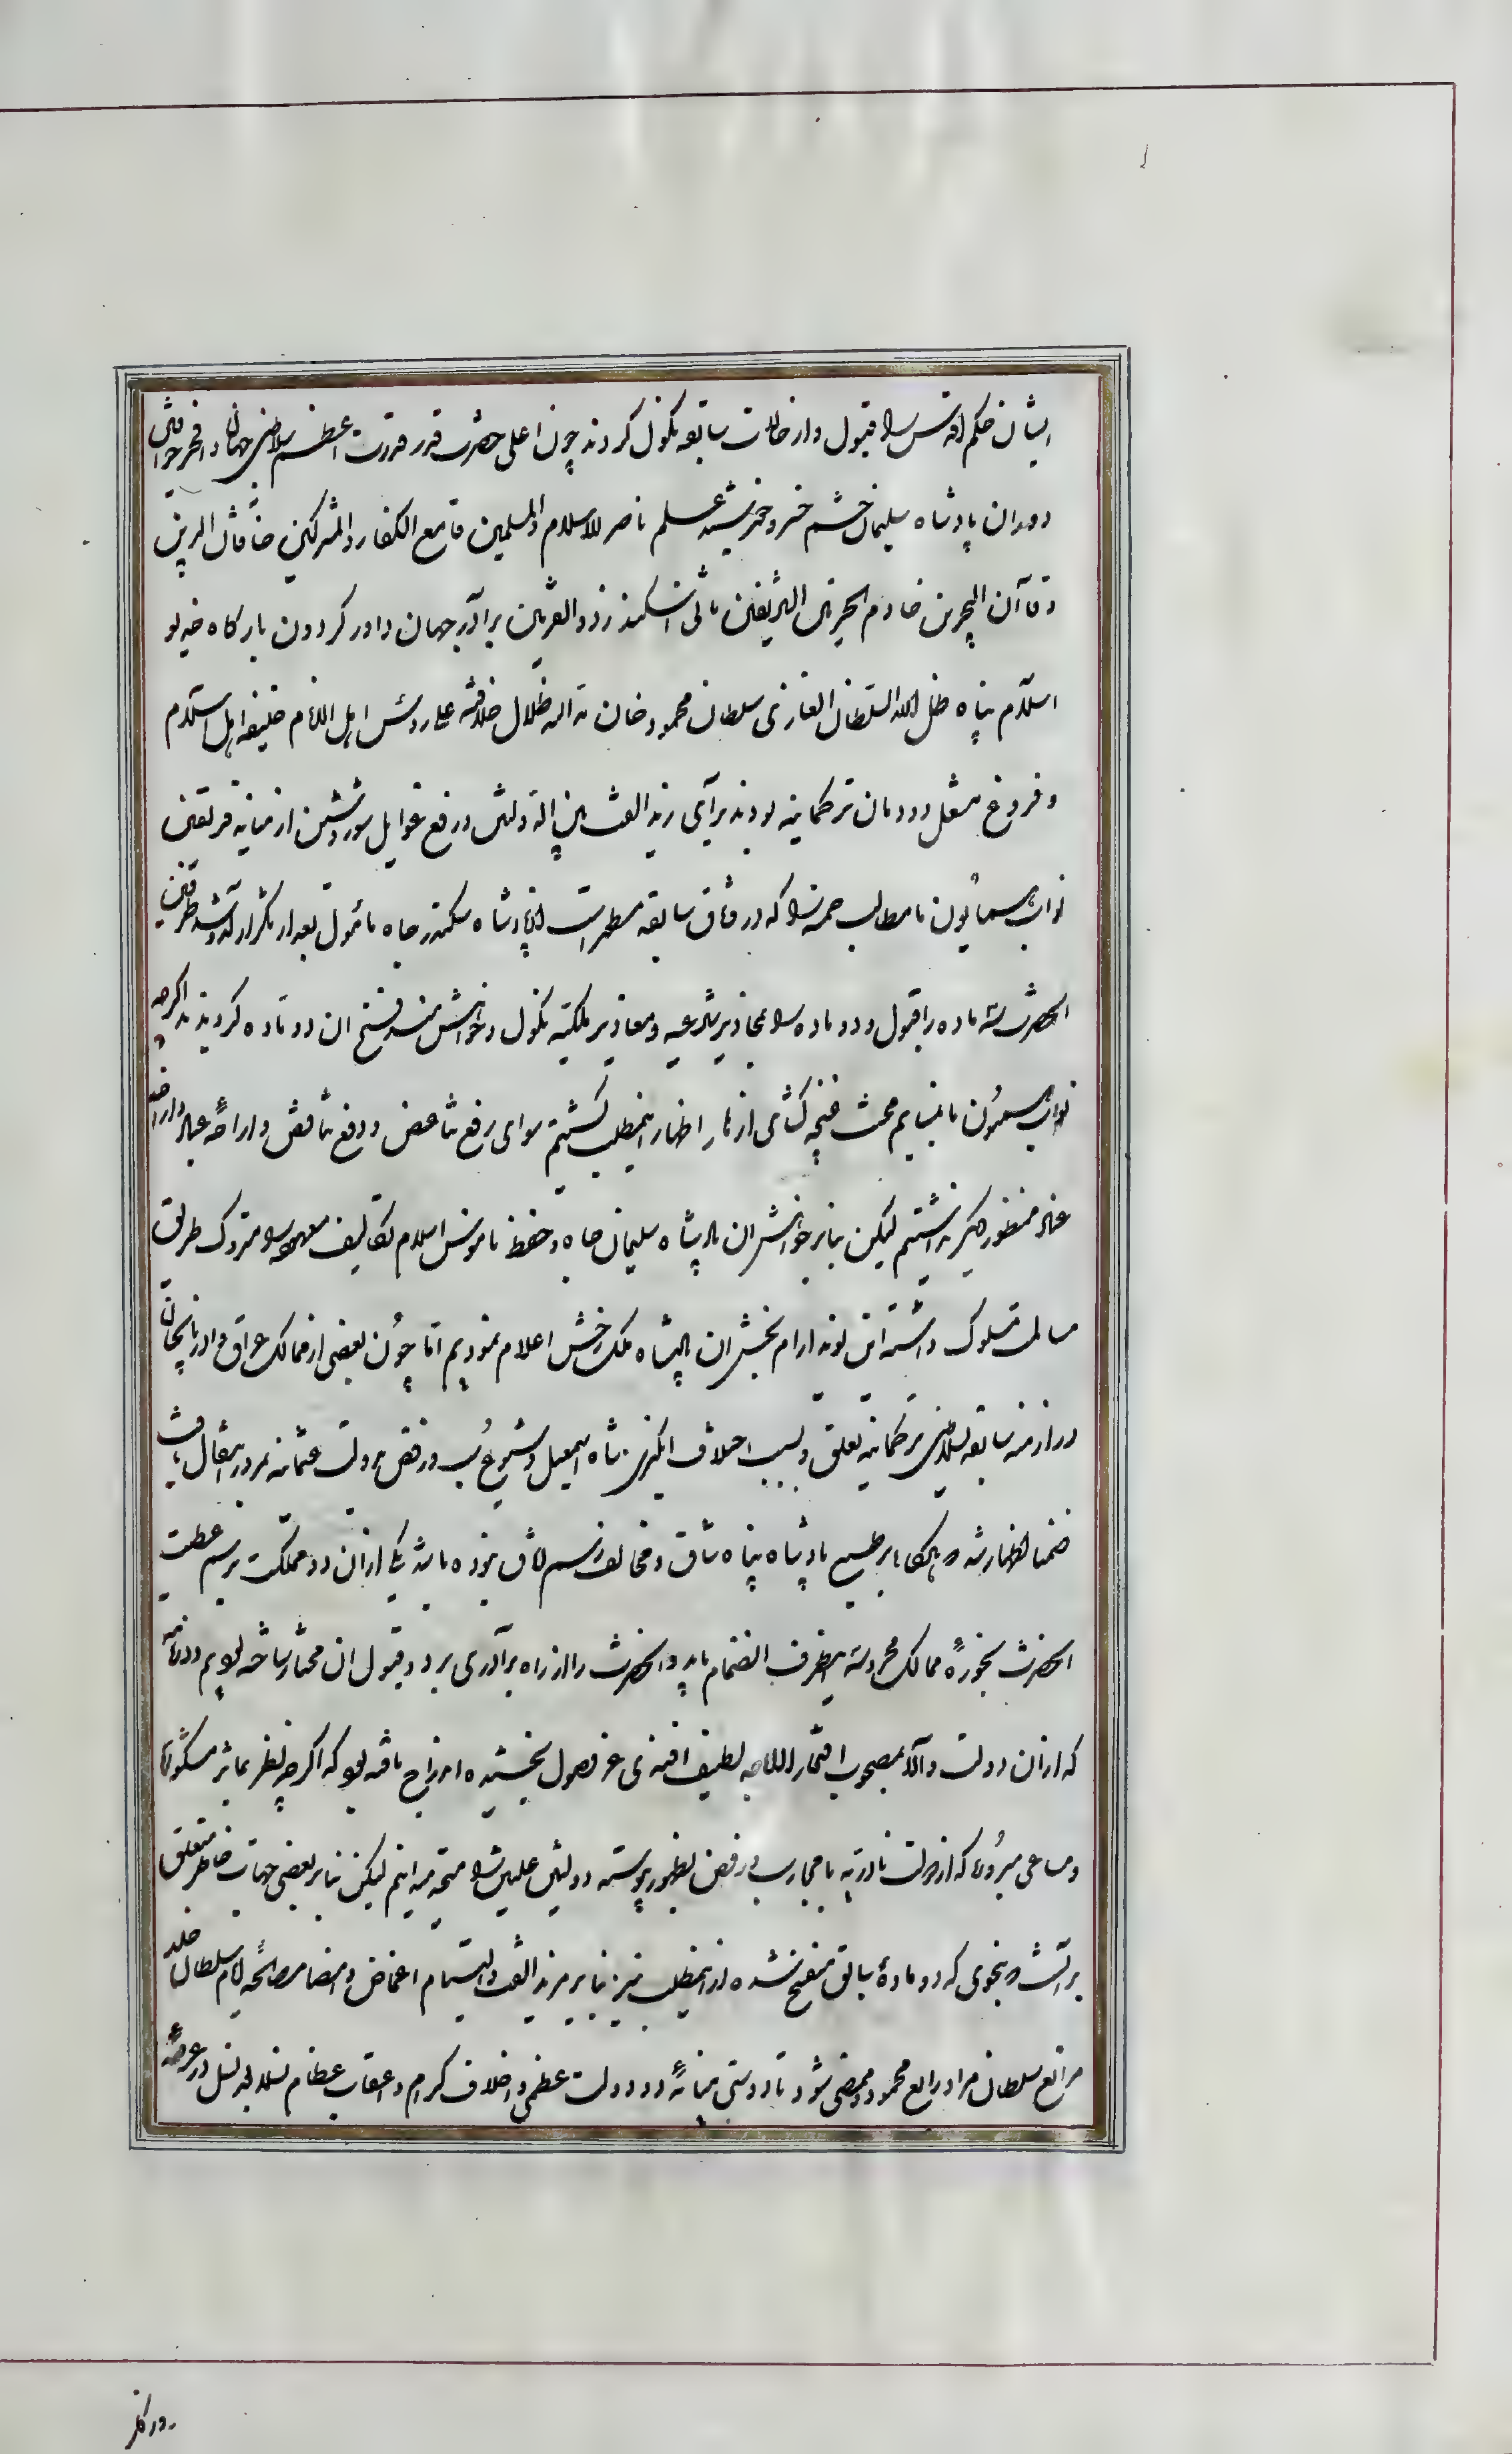 ایشان حکم اقدس را قبول و از حالات سابقه نکول کردند چون اعلی حضرت قدر قدرت اعظم سلاطین جهان و افخم خواقین
دوران پادشاه سلیمان حشم خسرو خورشید علم ناصر الاسلام والمسلمین قامع الکفار والمشرکین خاقان البرین
و قاآن البحرین خادم الحرمین الشریفین ثانی اسکندر ذو القرنین برادر جهان داور کردون بارکاه خدیو
اسلام پناه ظل الله السلطان الغازی سلطان محمود خان مد الله ظلال خلافته علی رؤس اهل الانام خلیفه اهل اسلام
و فروغ مشعل دودمان ترکمانیه بودند برای مزید الفت بین الدولتین و رفع غوایل شور و شین از میانه فریقین
نواب همایون ما مطالب خمسه را که در وثاق سابقه مسطور است از پادشاه سکندر جاه مأمول بعد از تکرار آمد و شد طرفین
آنحضرت سه ماده را قبول و دو ماده را بمحاذیر شرعیه و معاذیر ملکیه نکول و خواهشمند فسخ ان دو ماده کردیدند اکرچه
نواب همیون ما بنسایم محبت غنچه کشای ازهار اظهار اینمطلب کشتیم سوای رفع تباغض و دفع تناقض و اراحه عباد و ازاحه
عناد منظور دیگر نداشتیم لیکن بنابر خواهش ان پادشاه سلیمان جاه و حفظ ناموس اسلام تکالیف معهوده را متروک طریق
مسالمت مسلوک داشته این نوید ارام بخش ان پادشاه ملک رخش اعلام نمودیم اما چون بعضی از ممالک عراق و اذربایجان
در ازمنه سابقه بسلاطین ترکمانیه تعلق و بسبب اختلاف انکیزی شاه اسمعیل و شیوع سب و رفض بدولت عثمانیه مرور انتقال یافت
ضمنا اظهار شد که هرکاه بر طبع پادشاه پناه شاق و مخالف رسم وفاق نبوده باشد یکی از ان دو مملکت برسم عطیت
آنحضرت بحوزه ممالک محروسه اینطرف انضمام یابد و آنحضرت را از راه برادری برد و قبول ان مختار ساخته بودیم و در نامه
که از ان دولت والا بمصحوب افتخار الاماجد لطیف افندی عز وصول بخشیده اندراج یافته بود که اکرچه بنظر بمآثر مشکوره
و مساعی مبروره که از دولت نادریه با محاربی رفض بظهور پیوسته دولتین علیتین را متحد میدانیم لیکن بنابر بعضی جهات خاطر متعلق
بر آنست که بنحوی که دو ماده سابق منفسخ شده از اینمطلب نیز بنابر مزید الفت و التیام اغماض و امضا مصالحه ایام سلطان خلد
مراتع سلطان مراد رابع محمود و ممضی شود تا دوستی میانه دو دولت عظمی و اخلاف کرام و اعقاب عظام نسلا بعد نسل در عرصه
روزکار